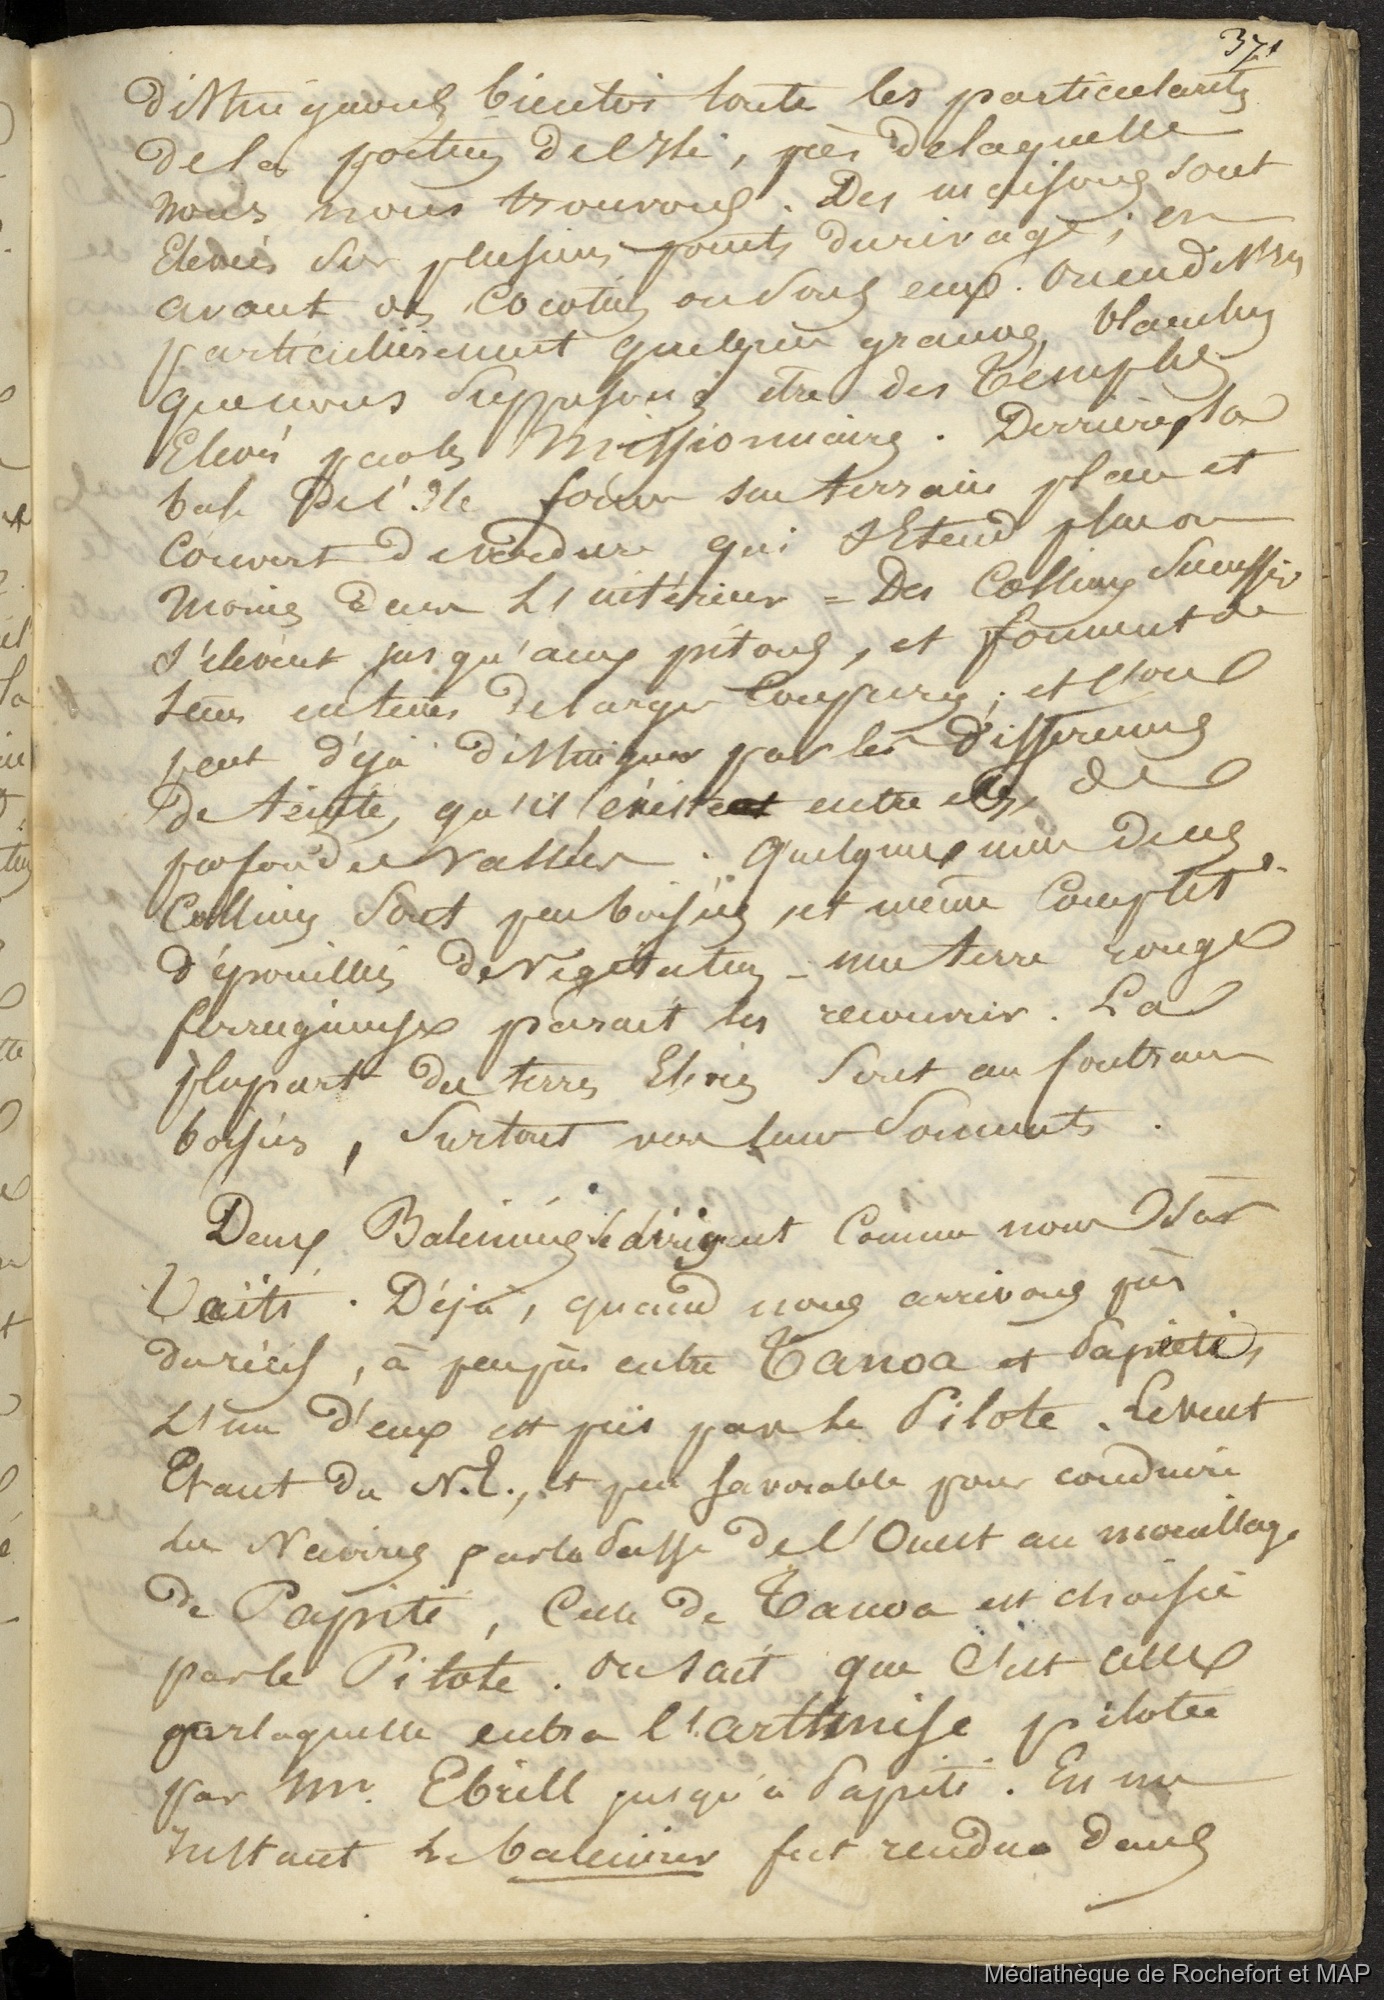 371
distinguons bientôt toute les particularités
de la portion de l'Ile, près de laquelle
nous nous trouvons. Des maisons sont
Elevées sur plusieurs points du rivage ; en
avant des Cocotiers ou sous eux. On en distingue
particulièrement quelques grandes, blanches
que nous supposons être des Temples
Elevés par les Missionnaires. Derrière, la
base de l'Ile forme un terrain plan et
couvert de verdure qui s'Etend plus ou
moins dans L'intérieur = Des Collines successives
s'élèvent jusqu'aux pitons, et forment de
leurs entrées de larges Coupures ; et l'on
peut déjà distinguer par les différences
de teinte, qu'il éxiste entre elles, de
profondes vallées. Quelques unes de ces
Collines sont peu boisées, et même Complèt.
dépouillées de végétation _ une terre rouge
ferrugineuse parait les recouvrir. La
plupart des terres Elevées sont au contraire
boisées, surtout vers leurs sommets.
Deux Baleiniers se dirigent Comme nous sur
Taïti. Déjà, quand nous arrivons près
du récif, à peu près entre Tanoa et Papiéti,
L'un d'eux est pris par le Pilote. Le vent
Etant du N.E., et peu favorable pour conduire
les Navires par la Passe de l'Ouest au mouillage
de Papiti, Celle de Tanoa est choisie
par le Pilote. On sait que C'est celle
par laquelle entra l'arthémise pilotée
par Mr. Ebrill jusqu'à Papiti. En un
Instant le baleinier fut rendue dans
Médiathèque de Rochefort et MAP